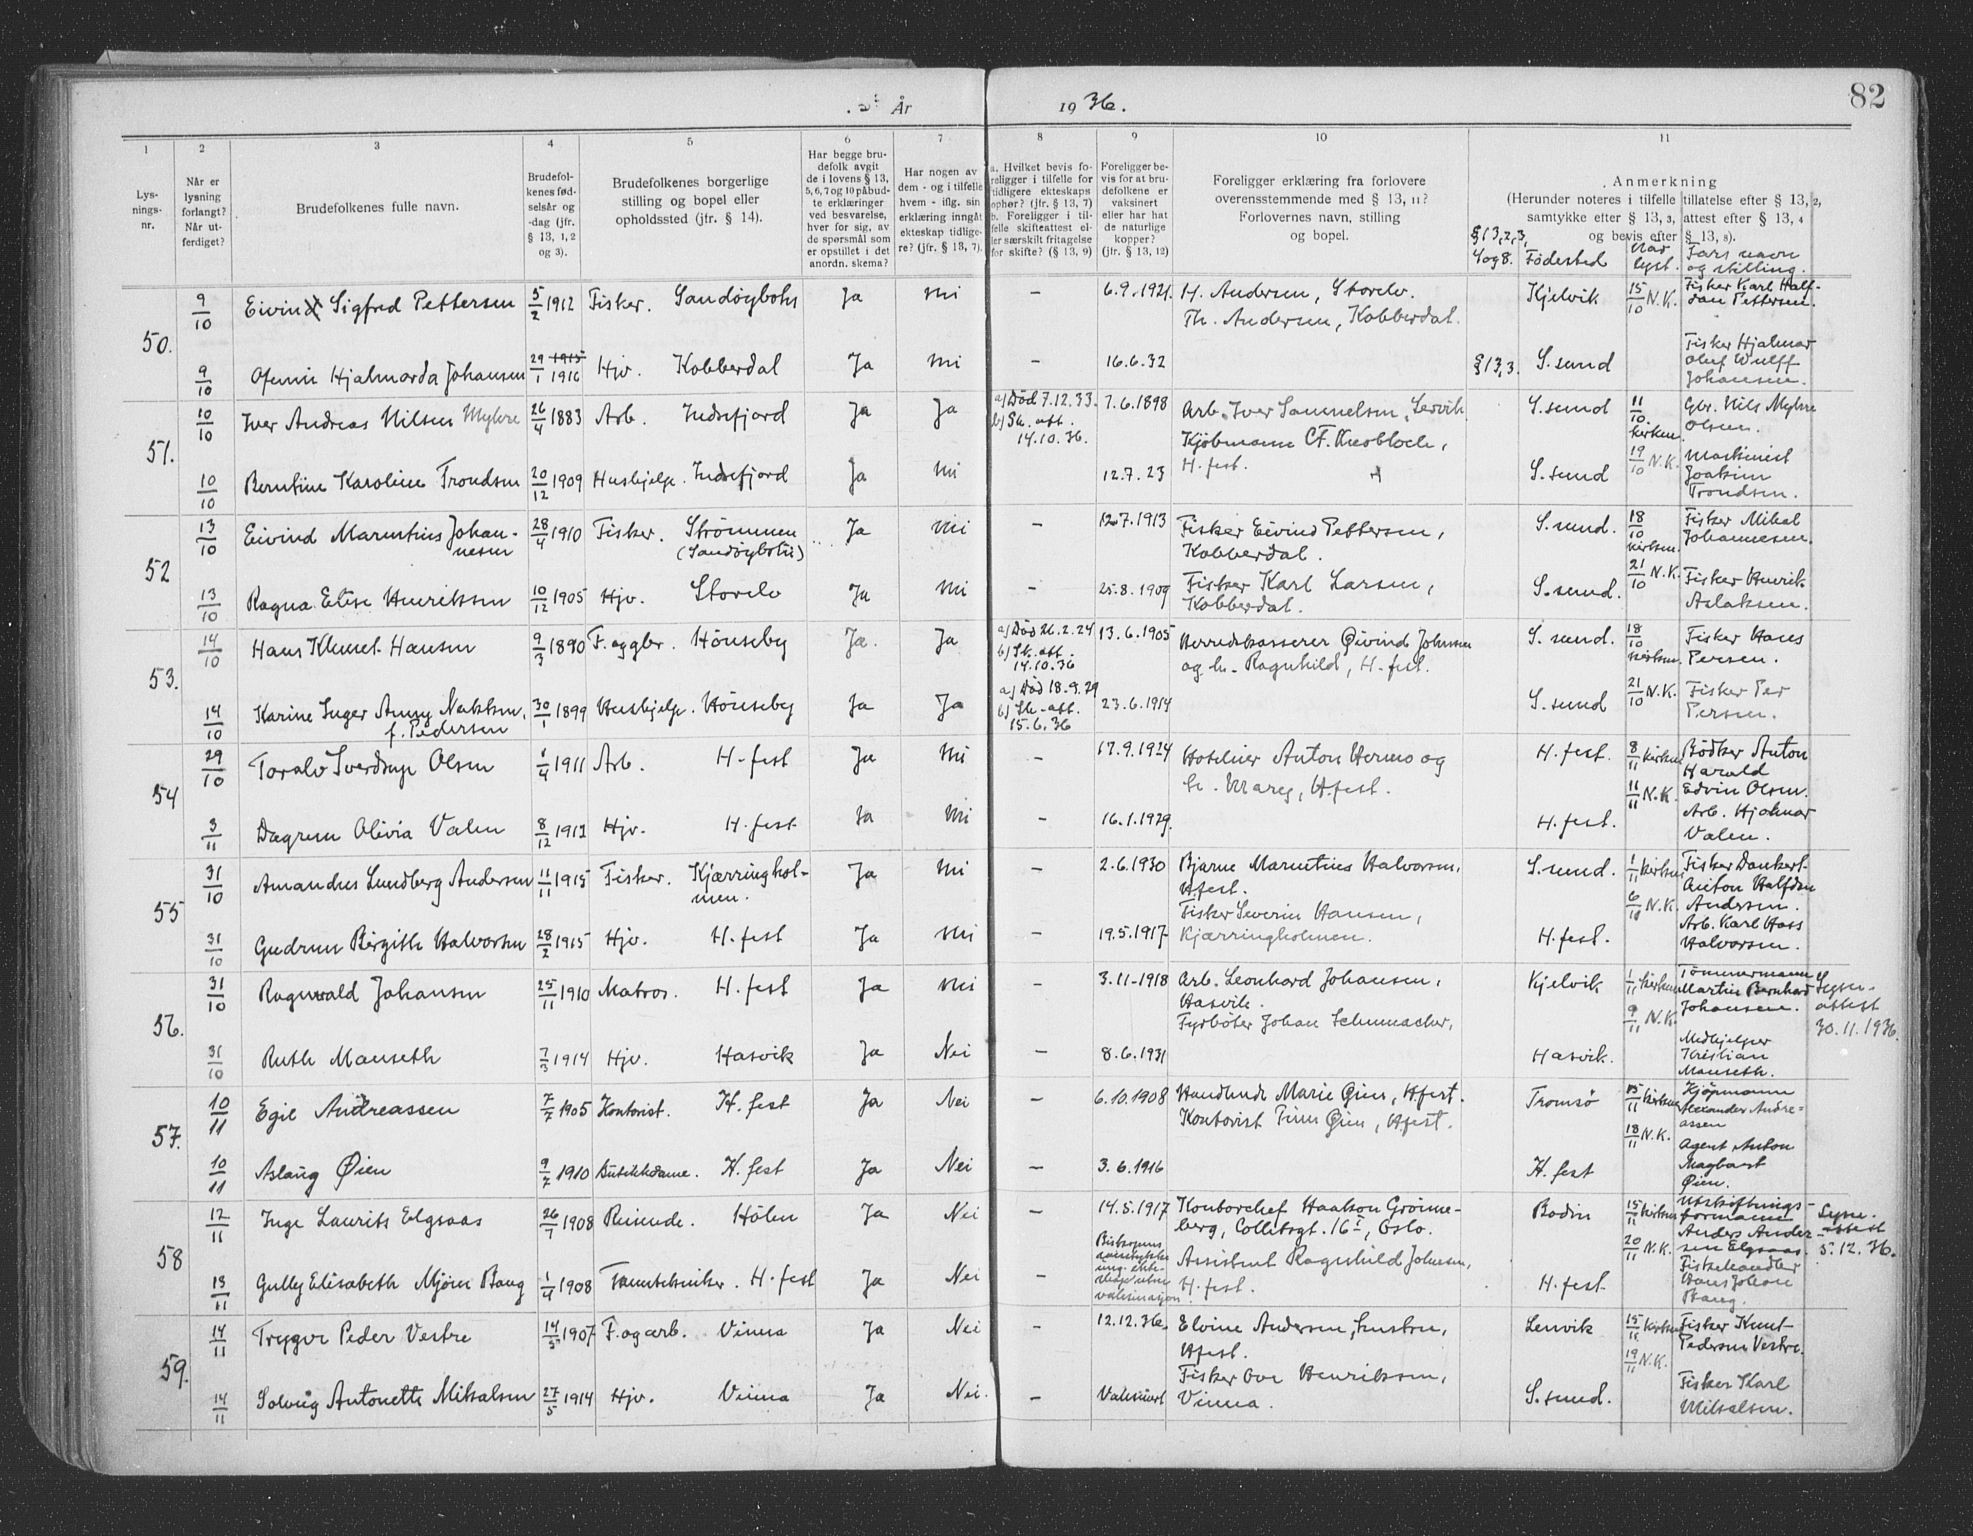 År
19 36.
82
1
2
3
4
5
6
7
8
9
10
11
Lys-
nings-
nr.
Når er
lysning
forlangt?
Når ut-
ferdiget?
Brudefolkenes fulle navn.
Brudefol-
kenes fød-
selsår og
-dag (jfr.
§ 13, 1, 2
og 3).
Brudefolkenes borgerlige
stilling og bopel eller
opholdssted (jfr. § 14).
Har begge bru-
defolk avgit
de i lovens § 13,
5, 6, 7 og 10 påbud-
te erklæringer
ved besvarelse,
hver for sig, av
de spørsmål som
er opstillet i det
anordn. skema?
Har nogen av
dem - og i tilfelle
hvem - iflg. sin
erklæring inngått
ekteskap tidlige-
re? (jfr. § 13, 7).
a. Hvilket bevis fo-
religger i tilfelle for
tidligere ekteskaps
ophør? (jfr. § 13, 7)
b. Foreligger i til-
felle skifteattest el-
ler særskilt fritagelse
for skifte? (§ 13, 9)
Foreligger be-
vis for at bru-
defolkene er
vaksinert
eller har hat
de naturlige
kopper?
(jfr. § 13, 12)
Foreligger erklæring fra forlovere
overensstemmende med § 13, 11?
Forlovernes navn, stilling
og bopel.
Anmerkning
(Herunder noteres i tilfelle tillatelse efter § 13, 2,
samtykke efter § 13, 3, attest efter § 13, 4
og bevis efter § 13, 8).
§13,2,3,
4og8. Fødested
Når
lyst.
Fars navn
og stilling.
50.
9/10 Eivind Sigfred Pettersen 5/2 1912 Fisker. Sandøybotn Ja Nei — 6.9.1921. H. Andersen, Storelv. Kjelvik 15/10 N.K. Fisker Karl Half-
dan Pettersen.
Th. Andersen, Kobberdal.
9/10 Hjalmarda Johansen 29/1 1915 1916 Hjv. Kobberdal Ja Nei — 16.6.32 §13,3. S.sund Fisker Hjalmar
Oluf Wulff
Johansen.
51.
10/10 Iver Andreas Nilsen Myhre 26/4 1883 Arb. Indrefjord Ja Ja a) Død 7.12.33. b) Sk. att. 14.10.36. 7.6.1898 Arb. Iver Samuelsen, Lervik S.sund 11/10 kirken Gbr. Nils Myhre
Olsen.
Kjøbmann C.F. Knobloch,
H.fest.
10/10 Berntine Karoline Trondsen 20/12 1909 Hushjelp. Indrefjord Ja Nei 12.7.23 S.sund 19/10 N.K. Maskinist
Joakim
Trondsen.
52
13/10 Eivind Marentius Johan-
nesen 28/4 1910 Fisker. Strømmen
(Sandøybotn) Ja Nei — 12.7.1913 Fisker Eivind Pettersen,
Kobberdal. S.sund. 18/10 kirken Fisker Mikal
Johannesen.
13/10 Ragna Elise Henriksen 10/12 1905 Hjv. Storelv Ja Nei — 25.8.1909 Fisker Karl Larsen,
Kobberdal. S.sund. 21/10 N.K. Fisker Henrik
Aslaksen.
53.
14/10 Hans Klemet Hansen 9/3 1890 F. og gbr. Hønseby Ja. Ja a) Død 26.2.24 b) Sk. att. 14.10.36 13.6.1905 Herredskasserer Øivind Johnsen
og h. Ragnhild, H.fest. S.sund. 18/10 kirken Fisker Hans
Persen.
14/10 Karine Inger Anny Nakken,
f. Pedersen 30/1 1899 Hushjelp. Hønseby Ja Ja a) Død 18.9.29 b) Sk. att. 15.6.36 23.6.1914 S.sund 21/10 N.K. Fisker Per
Persen.
54
29/10 Toralv Sverdrup Olsen 1/4 1911 Arb. H.fest Ja Nei — 17.9.1924 Hotelier Anton Hermo og
h. Mary, H.fest. H.fest. 8/11 kirken Bødker Anton
Harald
Edvin Olsen.
11/11 N.K.
3/11 Dagrun Olivia Valen 8/12 1912 Hjv. H.fest Ja Nei — 16.1.1929. H.fest. Arb. Hjalmar
Valen.
55
31/10 Amandus Lundberg Andersen 11/11 1915 Fisker. Kjærringhol-
men. Ja Nei — 2.6.1930 Bjarne Marentius Halvorsen,
H.fest. S.sund. 1/11 kirken Fisker Dankert
Anton Halfdan
Andersen.
6/10 N.K.
31/10 Gudrun Birgith Halvorsen 28/2 1915 Hjv. H.fest Ja Nei — 19.5.1917 Fisker Severin Hansen,
Kjærringholmen. H.fest. Arb. Karl Hass
Halvorsen.
56.
31/10 Ragnvald Johansen 25/11 1910 Matros. H.fest Ja Nei — 3.11.1918 Arb. Leonhard Johansen,
Hasvik. Kjelvik 1/11 kirken Tømmermann
Martin Bernhard
Johansen. Lysn.-
attest
30.11.1936.
Fyrbøter Johan Schumacher,
9/11 N.K.
31/10 Ruth Manseth 7/3 1914 Hjv. Hasvik Ja Nei — 8.6.1931 Hasvik. Medhjelper
Kristian
Manseth.
57.
10/11 Egil Andreassen 7/7 1905 Kontorist. H.fest Ja Nei — 6.10.1908 Handlende Marie Øien, H.fest.
Kontorist Finn Øien, H.fest. Tromsø 15/11 kirken Kjøpmann
Alexander Andre-
assen
18/11 N.K.
10/11 Aslaug Øien 9/7 1910 Butikkdame. H.fest Ja Nei — 3.6.1916 H.fest Agent Anton
Øien.
58
12/11 Inge Laurits Elgsaas 26/7 1908 Reisende. Hølen Ja Nei — 14.5.1917 Kontorchef Haakon Grønne-
berg, Collettsgt. 16 I, Oslo. Bodin 15/11 kirken Utskiftnings-
formann
Anders Ander-
sen Elgsaas. Lysn.-
attest
5.12.36.
20/11 N.K.
13/11 Gully Elisabeth Mjøen Bang 1/4 1908 Tanntekniker. H.fest Ja Nei — Biskopens
samtykke
inng. ekte-
skap uten
vaksinasjon. Assistent Ragnhild Johnsen,
H.fest. H.fest. Fiskehandler
Hans Johan
Bang.
59.
14/11 Trygve Peder Vestre 14/5 1907 F. og arb. Vinna Ja Nei — 12.12.36. Elvine Andersen, hustru,
H.fest. Lenvik 15/11 kirken Fisker Knut
Pedersen Vestre.
19/11 N.K.
14/11 Solveig Antonette Mikalsen 27/5 1914 Hjv. Vinna Ja Nei. — Vaksinert Fisker Ove Henriksen,
Vinna. S.sund. Fisker Karl
Mikalsen.